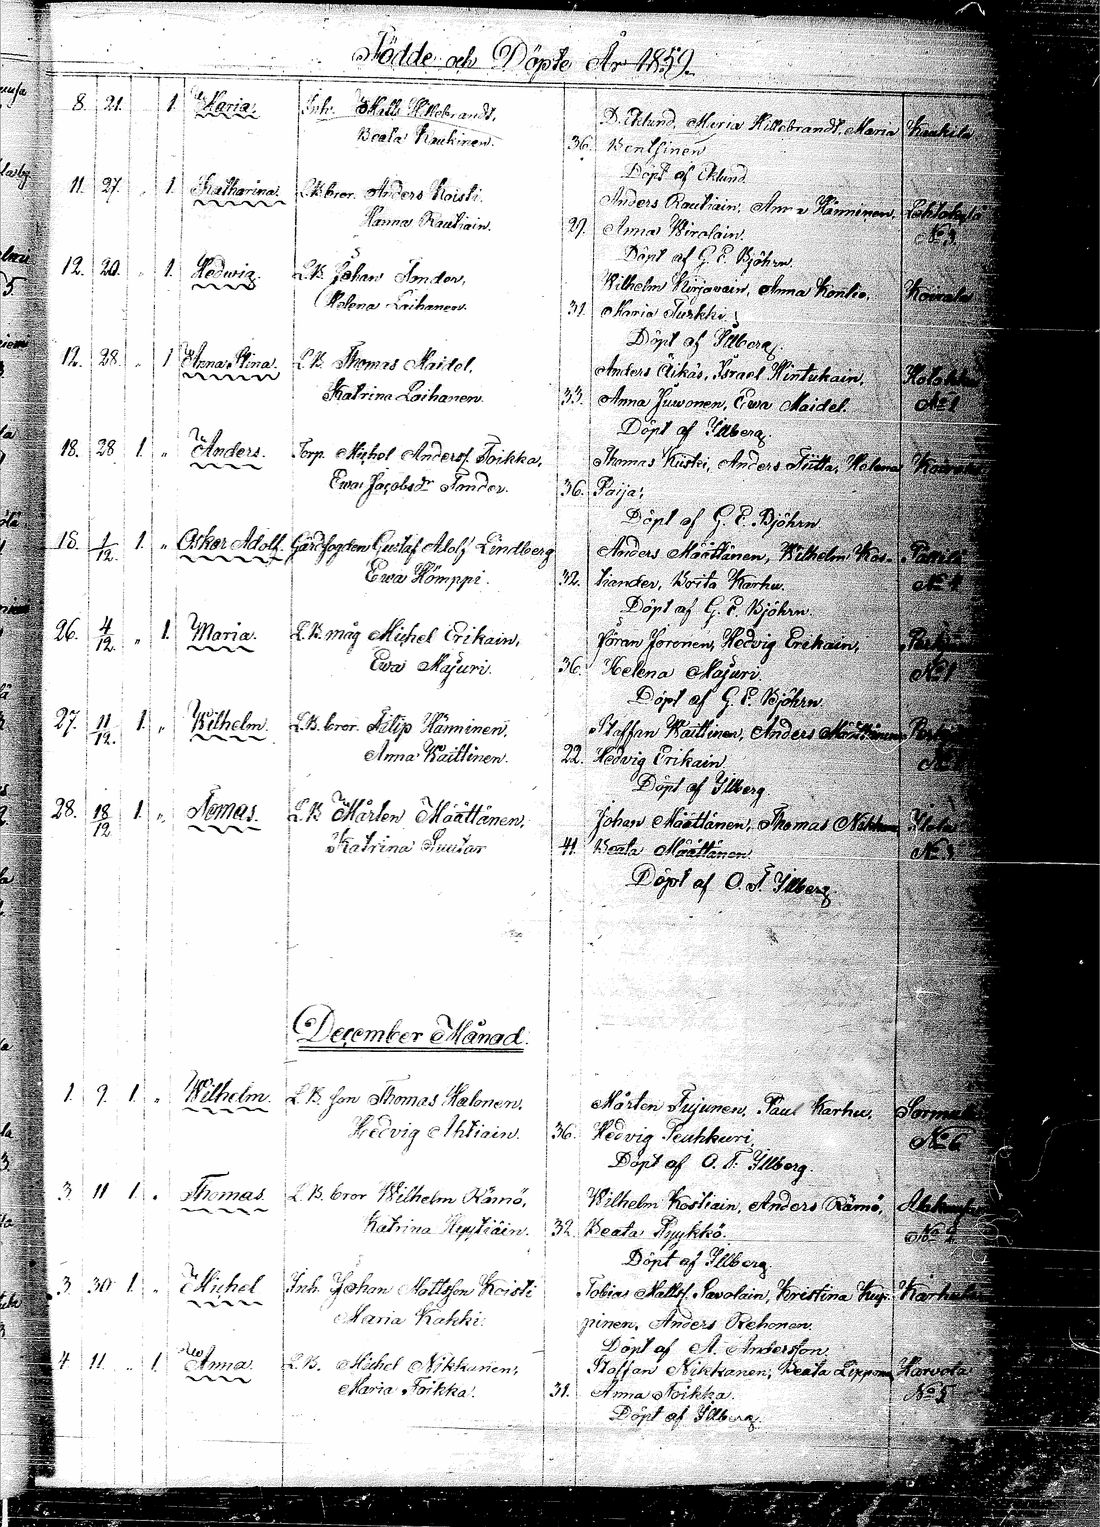 Födde och Döpte År 1859.
8. 21. 1. Maria. Inh. Matts Hillebrandt, D. Eklund, Maria Hillebrandt, Maria Kaukila
Beata Kaukinen. 36. Benttinen
Döpt af Eklund
11. 27. " 1. Katharina. L.B. bror. Anders Koisti. Anders Rautiain, Anna Hänninen, Lahtokylä
Hanna Rautiain. 29. Anna Wirolain. No 3.
Döpt af G. E. Björhn.
12. 20. " 1. Hedwig. L.B. Johan Tander, Wilhelm Kirjavain, Anna Kontio,
Helena Laihanen. 31. Maria Turkki.
Döpt af Ylberg.
12. 28. " 1 Anna Stina. L.B. Thomas Maidel, Anders Äikäs, Israel Hintukain,
Katrina Laihanen. 33. Anna Juwonen, Ewa Maidel. No 1
Döpt af Ylberg.
18. 28 1. " Anders. Torp. Michel Andersf. Toikka, Thomas Kiiski, Anders Tiitta, Helena
Ewa Jacobsdr Tander. 36. Paija;
Döpt af G. E. Björhn.
18. 1/12. 1. " Oskar Adolf. Gårdfogden Gustaf Adolf Lindberg Anders Määttänen, Wilhelm Kos-
Ewa Kömppi. 32. tiander, Brita Karhu. No 4
Döpt af G. E. Björhn.
26. 4/12. " 1. Maria. L.B. måg Michel Erikain, Jöran Joronen, Hedvig Erikain,
Ewa Majuri. 36. Helena Majuri. No 1
Döpt af G. E. Björhn.
27. 11/12. 1. " Wilhelm. L.B. bror. Filip Hänninen, Staffan Waittinen, Anders Määttänen
Anna Waittinen. 22. Hedvig Erikain.
Döpt af Ylberg
28. 18/12 1. " Tomas. L.B. Mårten Määttänen, Johan Määttänen, Thomas Ylola
Katrina Suutar 41. Beata Määttänen. No 3
Döpt af O. F. Ylberg
December Månad.
1. 9. 1. " Wilhelm. L.B. son Thomas Halonen. Mårten Tujunen, Paul Karhu,
Hedvig Ahtiain. 36. Hedvig Teuhkuri, No 6
Döpt af O. F. Ylberg.
3. 11 1. " Thomas. L.B. bror Wilhelm Rämö, Wilhelm Kostiain, Anders Rämö,
Katrina Hyytiäin. 32. Beata Pyykkö. No 2
Döpt af Ylberg.
3. 30 1. " Michel Inh. Johan Mattsson Koisti Tobias Mattsf. Savolain, Kristina Kup- Karhula
Maria Kakki. pinen, Anders Rehonen.
Döpt af A. Andersson.
4 11. " 1. Anna. L.B. Michel Nikkanen, Staffan Nikkanen, Beata Lipponen Harvola
Maria Toikka. 31. Anna Toikka. No 5
Döpt af Ylberg.